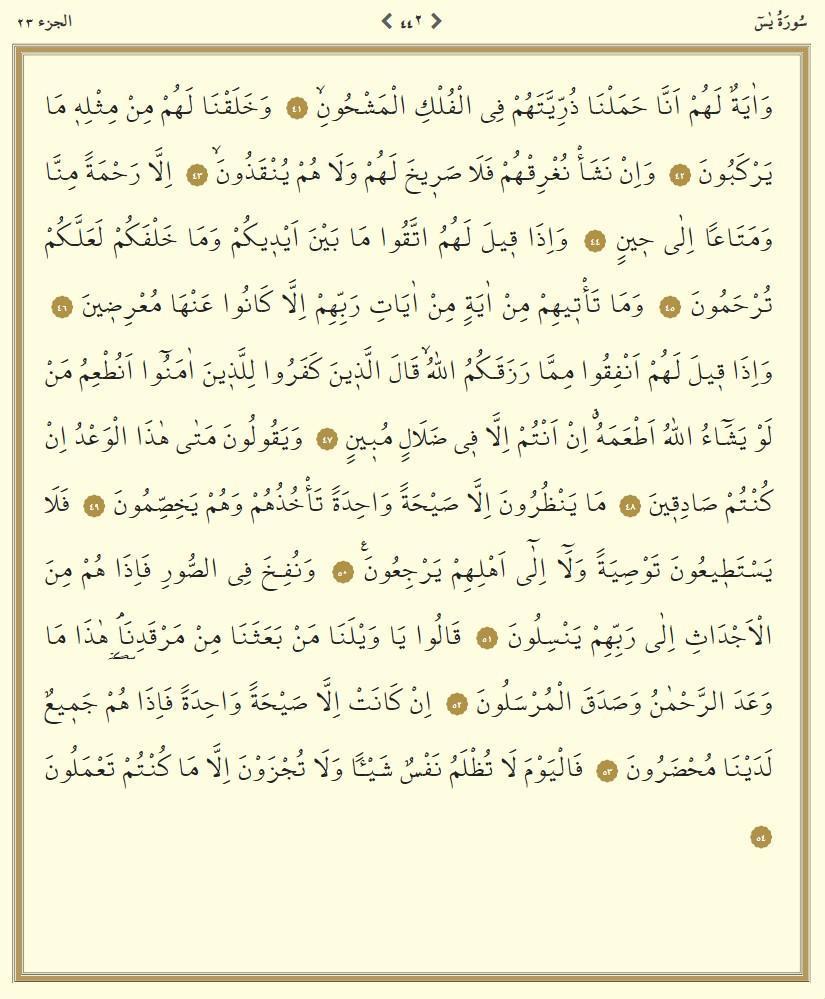 سُورَةُ يٰسٓ ٤٤٢ الجزء ٢٣
وَاٰيَةٌ لَهُمْ اَنَّا حَمَلْنَا ذُرِّيَّتَهُمْ فِى الْفُلْكِ الْمَشْحُونِۙ ٤١ وَخَلَقْنَا لَهُمْ مِنْ مِثْلِه۪ مَا
يَرْكَبُونَ ٤٢ وَاِنْ نَشَأْ نُغْرِقْهُمْ فَلَا صَر۪يخَ لَهُمْ وَلَا هُمْ يُنْقَذُونَۙ ٤٣ اِلَّا رَحْمَةً مِنَّا
وَمَتَاعًا اِلٰى ح۪ينٍ ٤٤ وَاِذَا ق۪يلَ لَهُمُ اتَّقُوا مَا بَيْنَ اَيْد۪يكُمْ وَمَا خَلْفَكُمْ لَعَلَّكُمْ
تُرْحَمُونَ ٤٥ وَمَا تَأْت۪يهِمْ مِنْ اٰيَةٍ مِنْ اٰيَاتِ رَبِّهِمْ اِلَّا كَانُوا عَنْهَا مُعْرِض۪ينَ ٤٦
وَاِذَا ق۪يلَ لَهُمْ اَنْفِقُوا مِمَّا رَزَقَكُمُ اللّٰهُۙ قَالَ الَّذ۪ينَ كَفَرُوا لِلَّذ۪ينَ اٰمَنُٓوا اَنُطْعِمُ مَنْ
لَوْ يَشَٓاءُ اللّٰهُ اَطْعَمَهُۗ اِنْ اَنْتُمْ اِلَّا ف۪ى ضَلَالٍ مُب۪ينٍ ٤٧ وَيَقُولُونَ مَتٰى هٰذَا الْوَعْدُ اِنْ
كُنْتُمْ صَادِق۪ينَ ٤٨ مَا يَنْظُرُونَ اِلَّا صَيْحَةً وَاحِدَةً تَأْخُذُهُمْ وَهُمْ يَخِصِّمُونَ ٤٩ فَلَا
يَسْتَط۪يعُونَ تَوْصِيَةً وَلَٓا اِلٰٓى اَهْلِهِمْ يَرْجِعُونَ۟ ٥٠ وَنُفِخَ فِى الصُّورِ فَاِذَا هُمْ مِنَ
الْاَجْدَاثِ اِلٰى رَبِّهِمْ يَنْسِلُونَ ٥١ قَالُوا يَا وَيْلَنَا مَنْ بَعَثَنَا مِنْ مَرْقَدِنَاۢ هٰذَا مَا
وَعَدَ الرَّحْمٰنُ وَصَدَقَ الْمُرْسَلُونَ ٥٢ اِنْ كَانَتْ اِلَّا صَيْحَةً وَاحِدَةً فَاِذَا هُمْ جَم۪يعٌ
لَدَيْنَا مُحْضَرُونَ ٥٣ فَالْيَوْمَ لَا تُظْلَمُ نَفْسٌ شَيْـًٔا وَلَا تُجْزَوْنَ اِلَّا مَا كُنْتُمْ تَعْمَلُونَ
٥٤